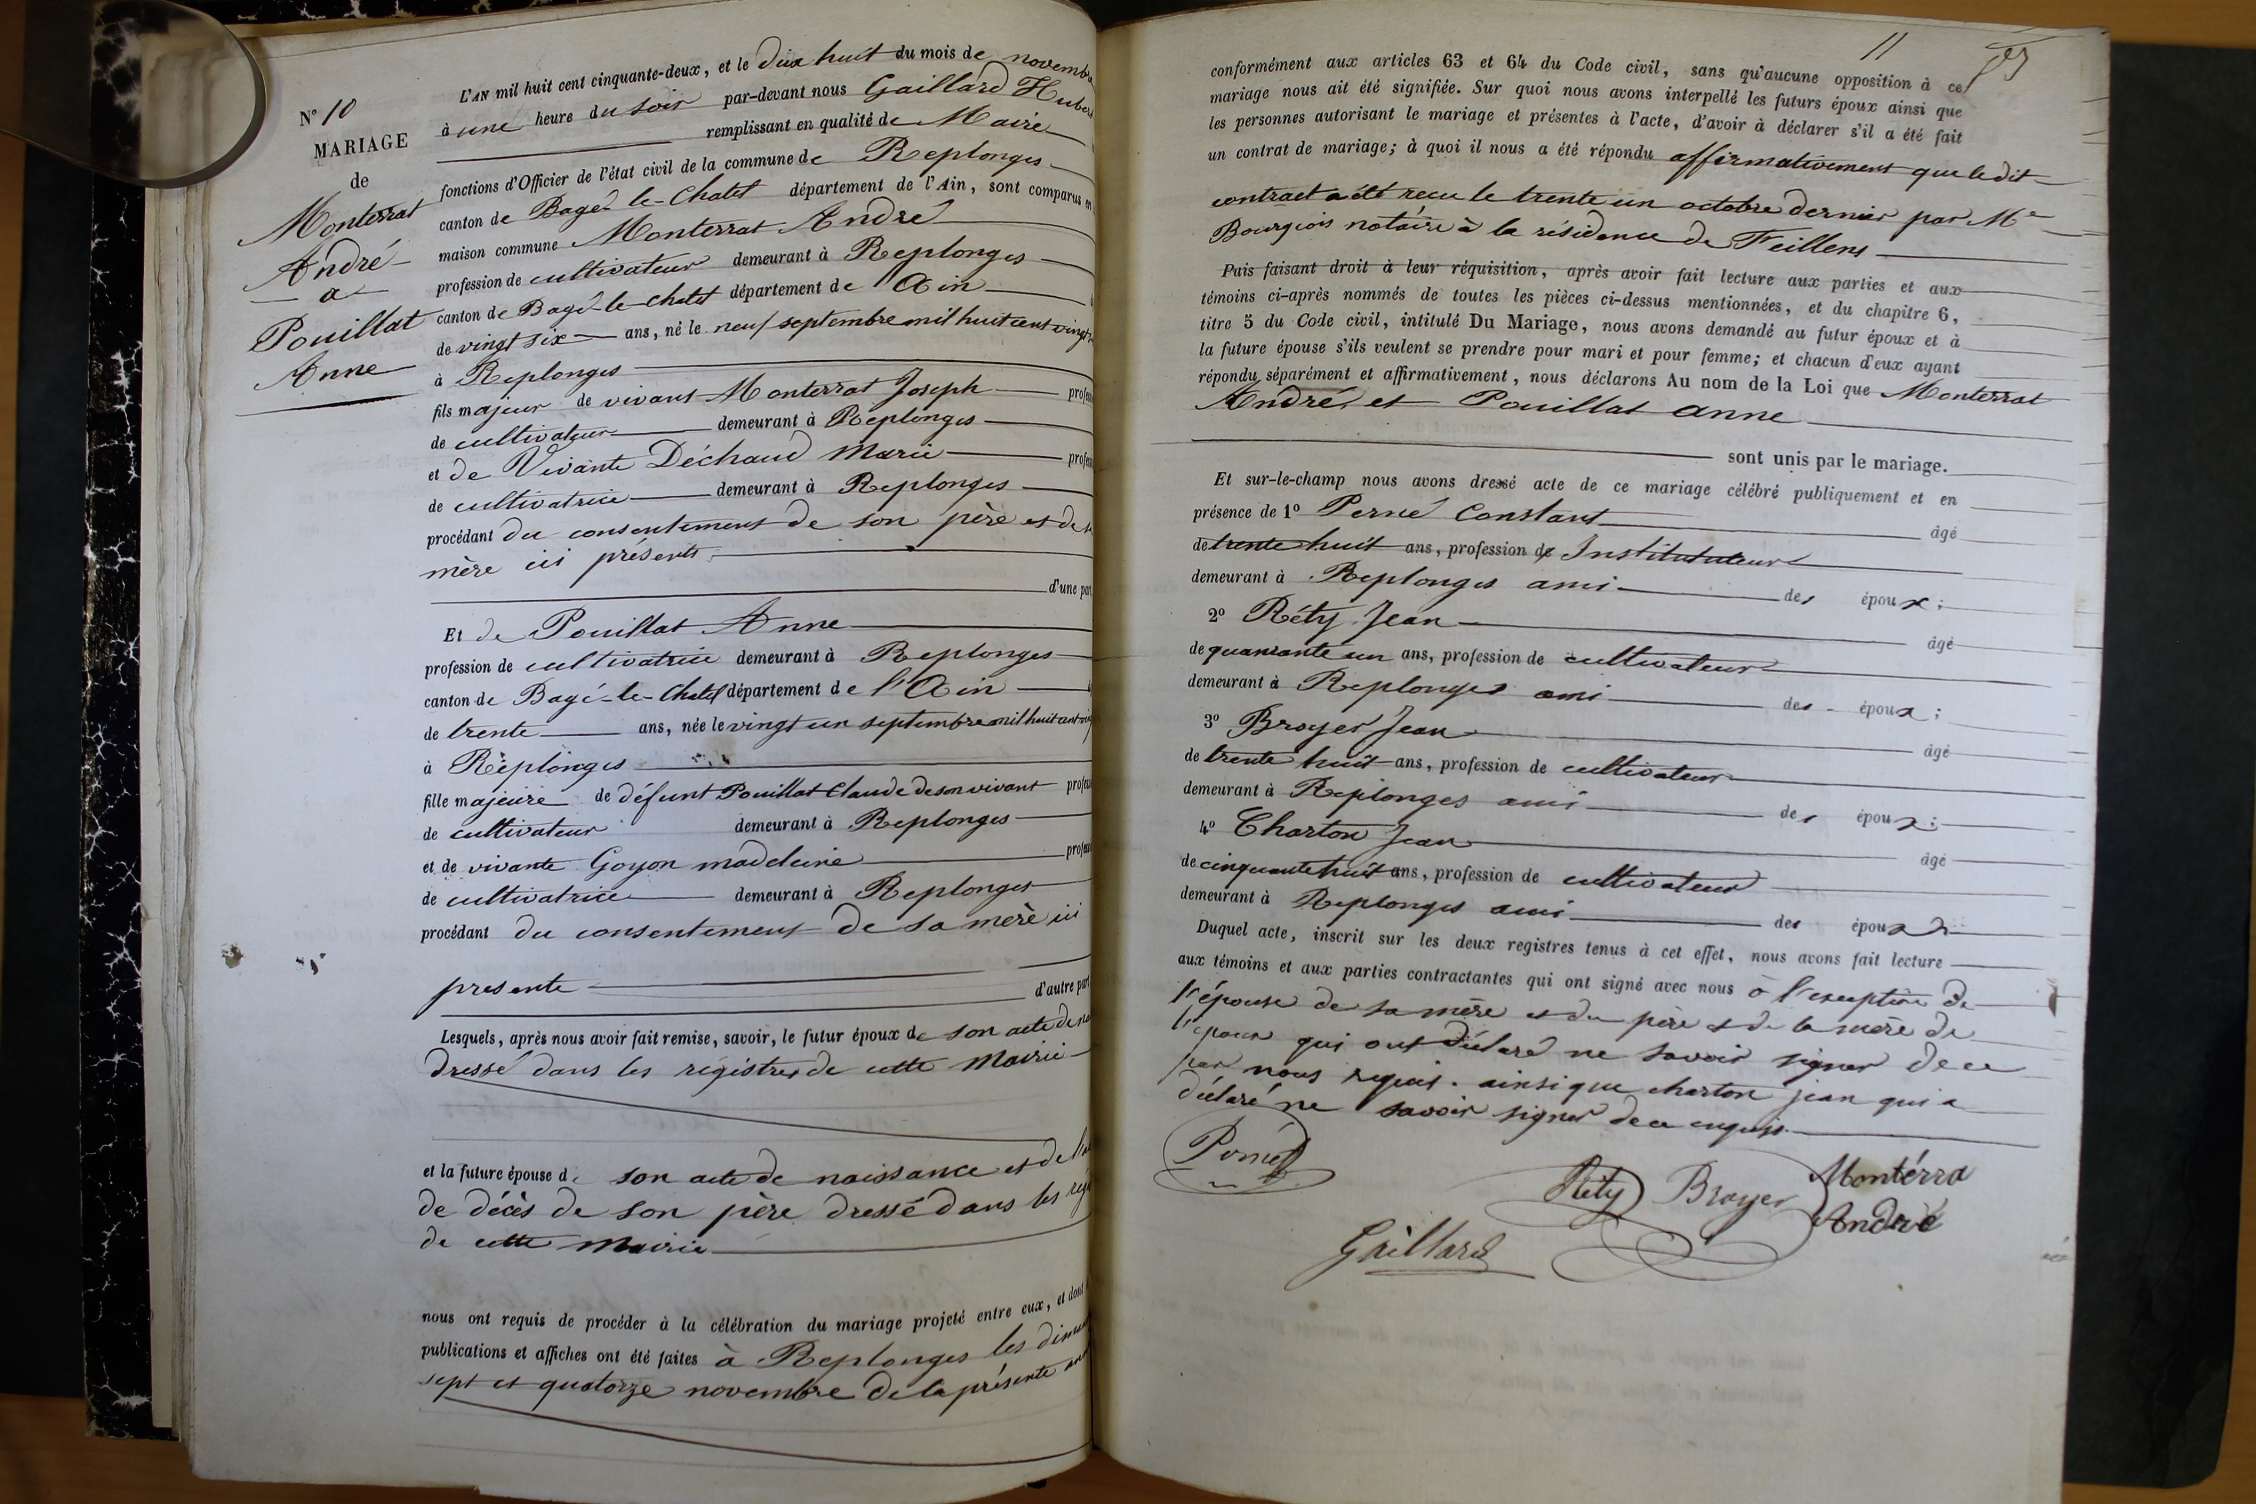 N° 10
MARIAGE
de
Monterrat
André
a
Pouillat
Anne
L'AN mil huit cent cinquante-deux, et le dix huit du mois de novembre
à une heure du soir par-devant nous Gaillard Hubert
remplissant en qualité de Maire
fonctions d'Officier de l'état civil de la commune de Replonges
canton de Bagé-le-Chatel département de l'Ain, sont comparus en
maison commune Monterrat André
profession de cultivateur demeurant à Replonges
canton de Bagé-le-chatel département de l'Ain
de vingt six ans, né le neuf septembre mil huit cent vingt
à Replonges
fils majeur de vivant Monterrat Joseph
de cultivateur demeurant à Replonges
et de Vivante Déchaud Marie
de cultivatrice demeurant à Replonges
procédant du consentement de son père et de
mère ici présents
d'une part
Et de Pouillat Anne
profession de cultivatrice demeurant à Replonges
canton de Bagé-le-Chatel département de l'Ain
de trente ans, née le vingt un septembre mil huit cent
à Replonges
fille majeure de défunt Pouillat Claude de son vivant
de cultivateur demeurant à Replonges
et de vivante Goyon madeleine
de cultivatrice demeurant à Replonges
procédant du consentement de sa mère ici
presente
d'autre part
Lesquels, après nous avoir fait remise, savoir, le futur époux de son acte de
dressé dans les régistres de cette Mairie
et la future épouse de son acte de naissance et de
de décès de son père dressé dans les
de cette Mairie
nous ont requis de procéder à la célébration du mariage projeté entre eux, et dont
publications et affiches ont été faites à Replonges les
sept et quatorze novembre de la présente
11
conformément aux articles 63 et 64 du Code civil, sans qu'aucune opposition à ce
mariage nous ait été signifiée. Sur quoi nous avons interpellé les futurs époux ainsi que
les personnes autorisant le mariage et présentes à l'acte, d'avoir à déclarer s'il a été fait
un contrat de mariage; à quoi il nous a été répondu affirmativement que le dit
contract a été reçu le trente un octobre dernier par Me
Bourgeois notaire à la résidence de Feillens
Puis faisant droit à leur réquisition, après avoir fait lecture aux parties et aux
témoins ci-après nommés de toutes les pièces ci-dessus mentionnées, et du chapitre 6,
titre 5 du Code civil, intitulé Du Mariage, nous avons demandé au futur époux et à
la future épouse s'ils veulent se prendre pour mari et pour femme; et chacun d'eux ayant
répondu séparément et affirmativement, nous déclarons Au nom de la Loi que Monterrat
André et Pouillat anne
sont unis par le mariage.
Et sur-le-champ nous avons dressé acte de ce mariage célébré publiquement et en
présence de 1° Constant
âgé
de trente huit ans, profession de Instituteur
demeurant à Replonges ami des époux;
2° Réty Jean
âgé
de quarante un ans, profession de cultivateur
demeurant à Replonges ami des époux;
3° Broyer Jean
âgé
de trente huit ans, profession de cultivateur
demeurant à Replonges ami des époux;
4° Charton Jean
âgé
de cinquante huit ans, profession de cultivateur
demeurant à Replonges ami des époux
Duquel acte, inscrit sur les deux registres tenus à cet effet, nous avons fait lecture
aux témoins et aux parties contractantes qui ont signé avec nous à l'exception de
l'épouse de sa mère et du père et de la mère de
l'époux qui ont déclaré ne savoir signer de ce
par nous requis. ainsi que charton jean qui a
déclaré ne savoir signer de ce enquis
Réty Broyer Montérra
André
Gaillard